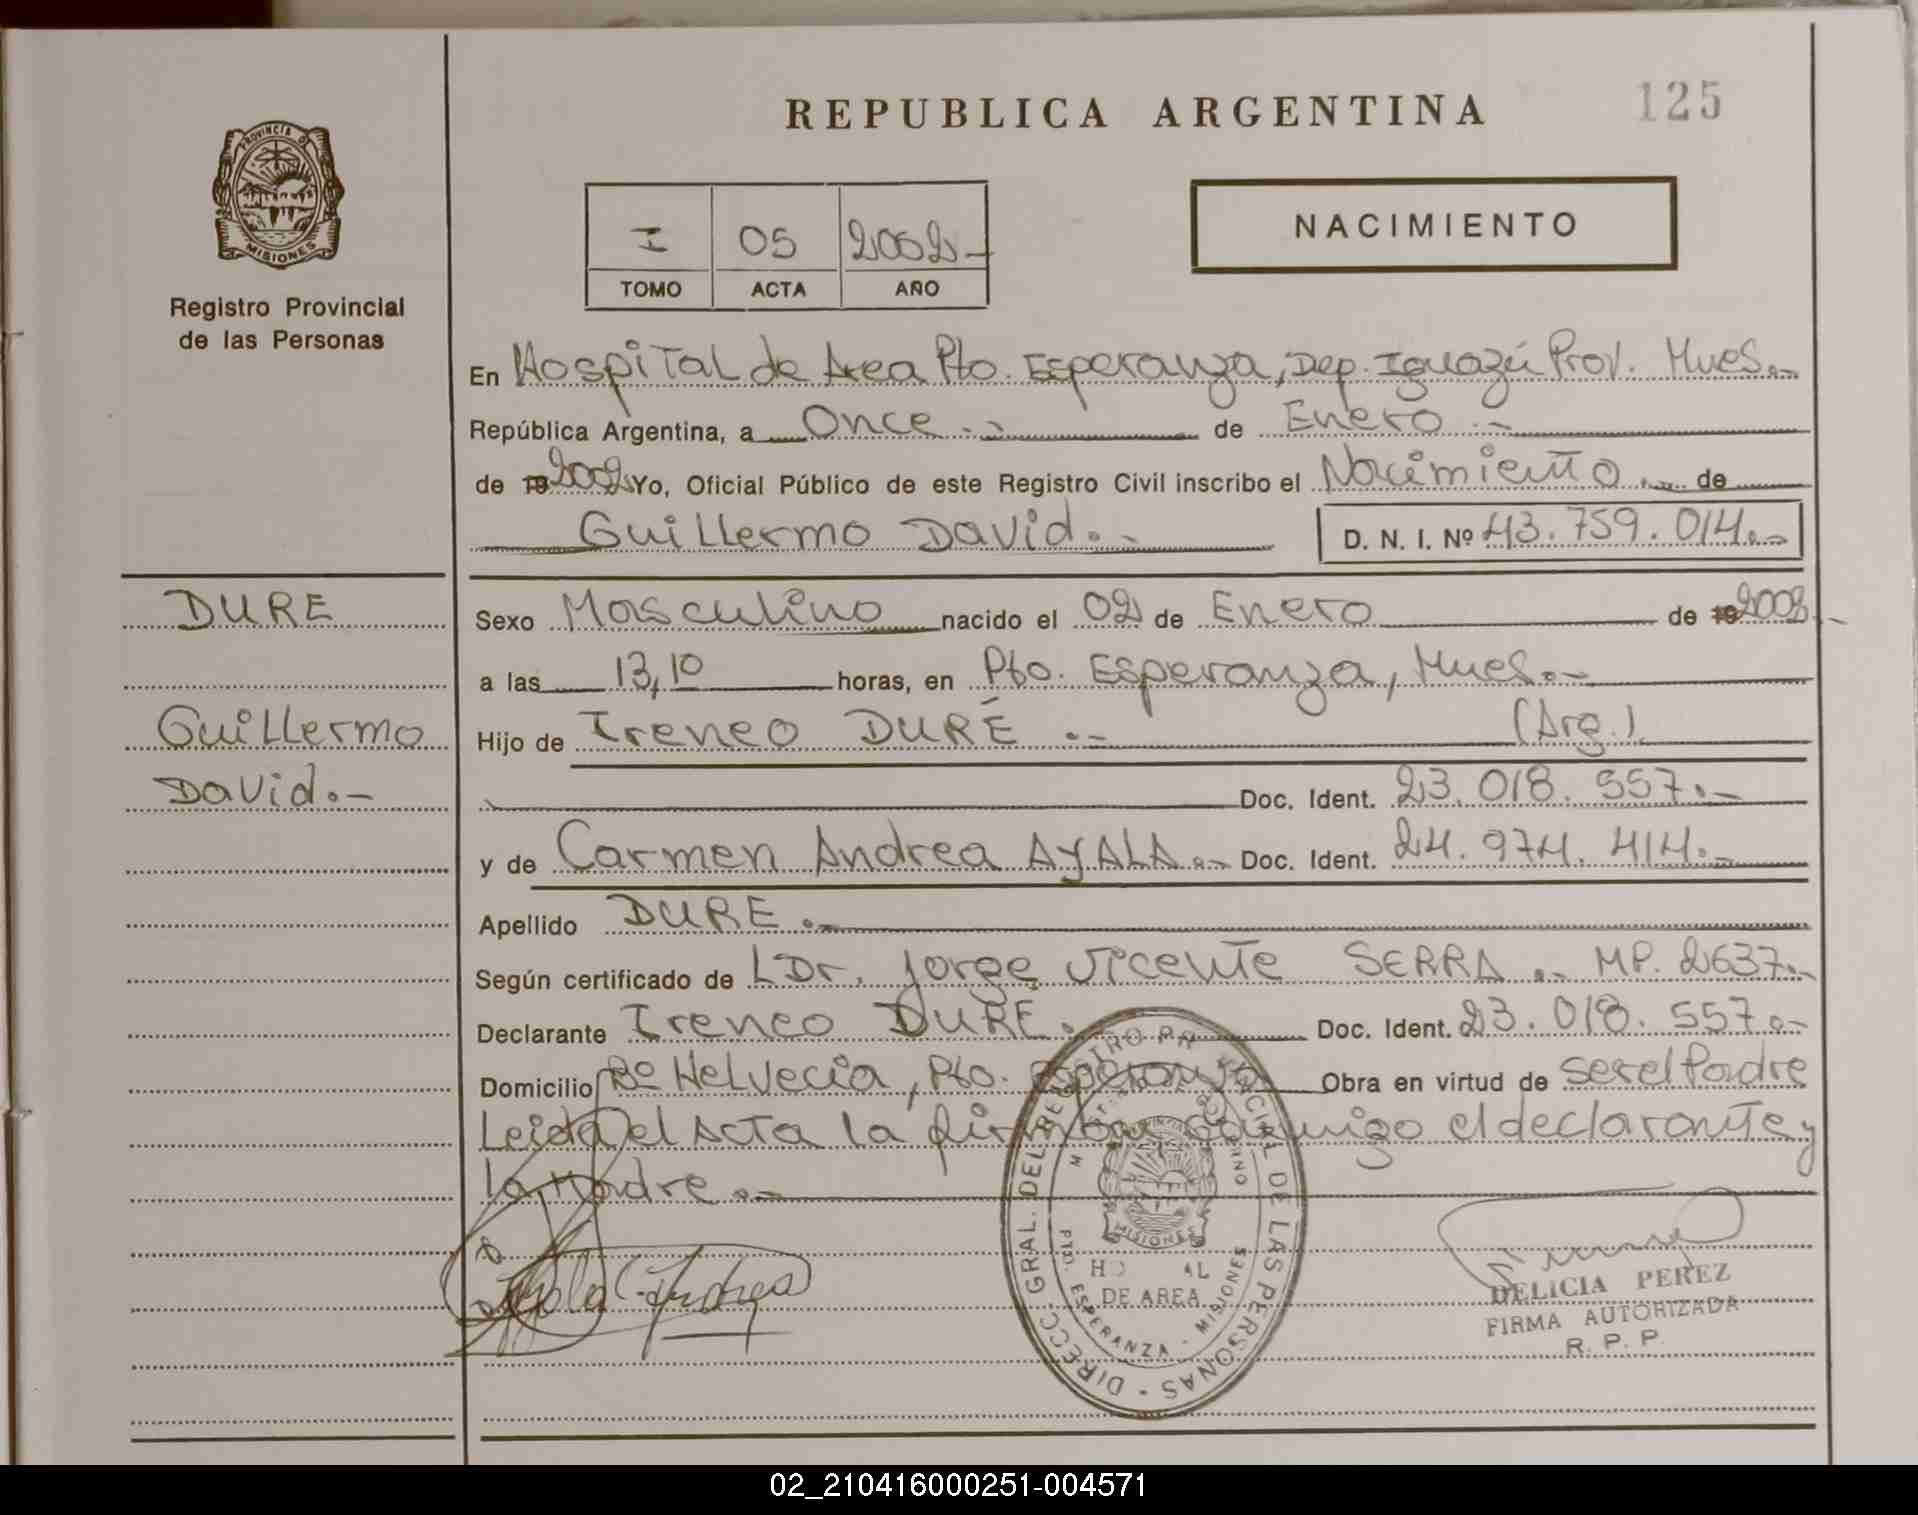 REPUBLICA ARGENTINA
125
PROVINCIA DE
MISIONES
Registro Provincial
de las Personas
I 05 2002.-
TOMO ACTA AÑO
NACIMIENTO
En Hospital de Area Pto. Esperanza, Dep. Iguazú Prov. Mnes.-
República Argentina, a Once.- de Enero.-
de 19 2002 Yo, Oficial Público de este Registro Civil inscribo el Nacimiento.- de
Guillermo David.- D. N. I. Nº 43.759.014.-
DURE
Guillermo
David.-
Sexo Masculino nacido el 02 de Enero de 19 2002.-
a las 13,10 horas, en Pto. Esperanza, Mnes.-
Hijo de Ireneo DURÉ.- (Arg.).
Doc. Ident. 23.018.557.-
y de Carmen Andrea AYALA.- Doc. Ident. 24.974.414.-
Apellido DURE.-
Según certificado de Dr. Jorge Vicente SERRA.- MP. 2637.-
Declarante Ireneo DURE. Doc. Ident. 23.018.557.-
Domicilio Bº Helvecia, Pto. Esperanza Obra en virtud de ser el Padre
Leida el Acta la firman conmigo el declarante y
la Madre.-
DIRECC. GRAL. DEL REGISTRO PROVINCIAL DE LAS PERSONAS
MISIONES
HO AL
DE AREA
PTO. ESPERANZA - MISIONES
DELICIA PEREZ
FIRMA AUTORIZADA
R. P. P.
02_210416000251-004571